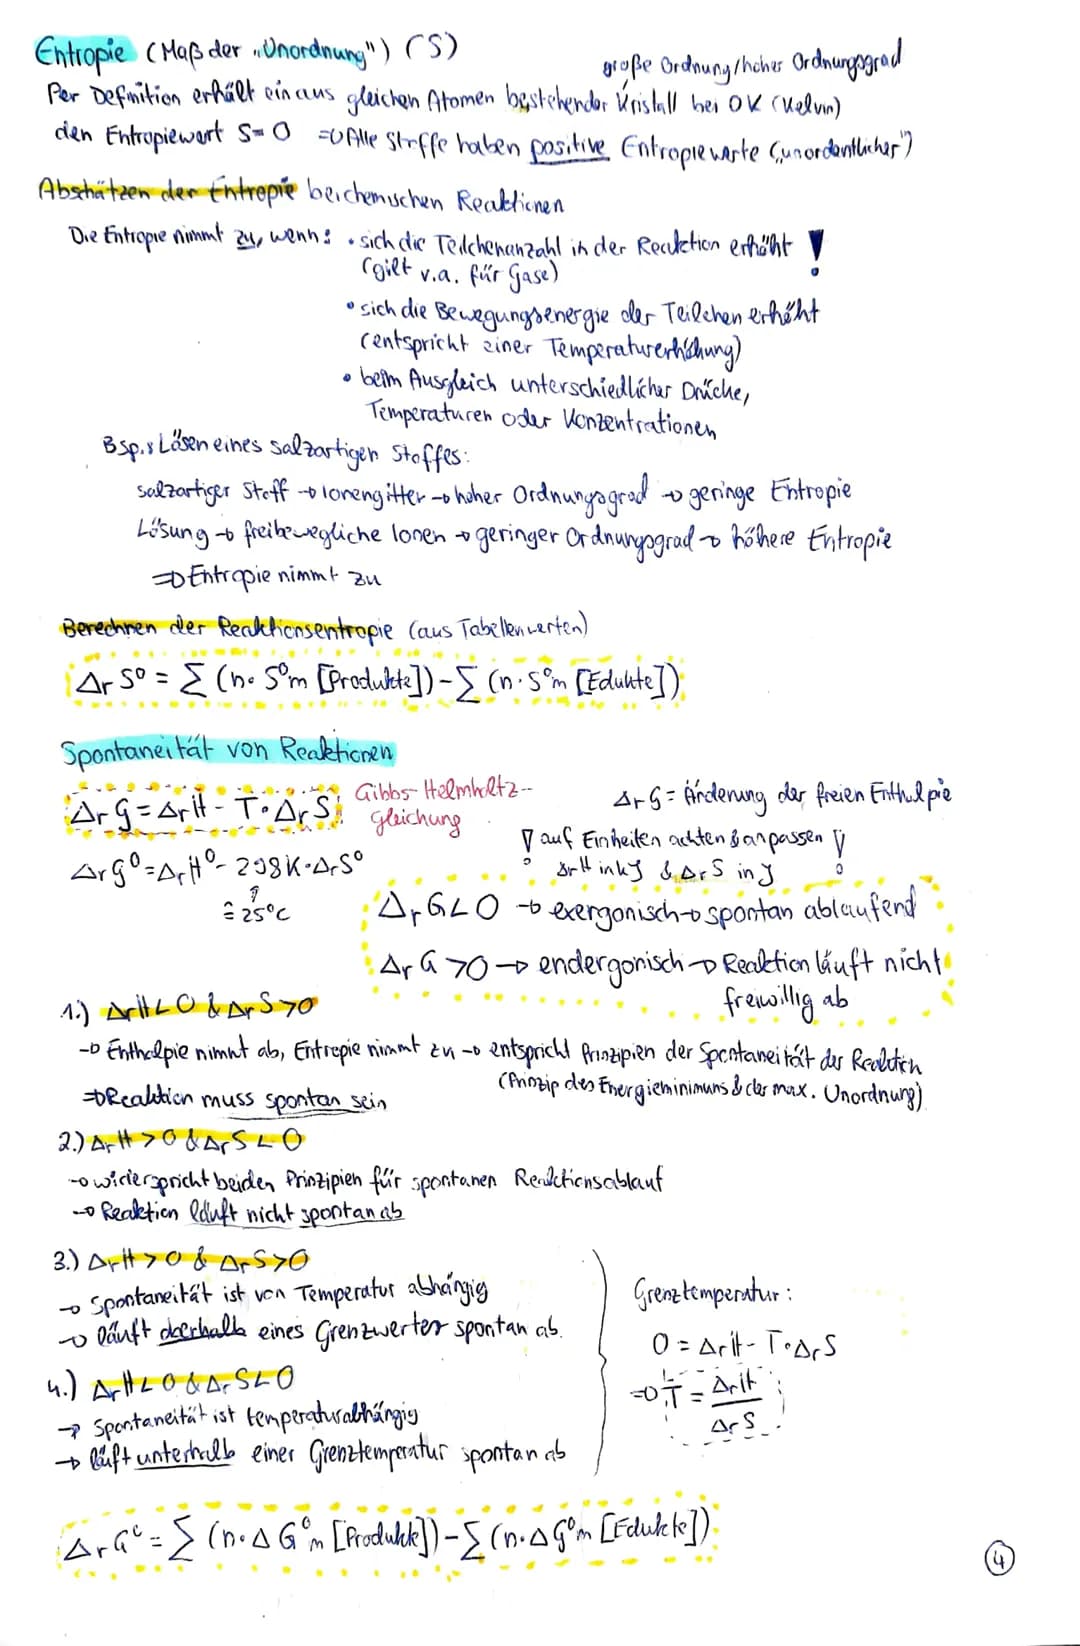 Entropie (Maß der „Unordnung") (S)
große Ordnung/hoher Ordnungsgrad
Per Definition erhält ein aus gleichen Atomen bestehender Kristall bei 0K (Kelvin)
den Entropiewert S=0 ⇒ Alle Stoffe haben positive Entropiewerte („unordentlicher")
Abschätzen der Entropie bei chemischen Reaktionen
Die Entropie nimmt zu, wenn: • sich die Teilchenanzahl in der Reaktion erhöht !
(gilt v.a. für Gase)
• sich die Bewegungsenergie der Teilchen erhöht
(entspricht einer Temperaturerhöhung)
• beim Ausgleich unterschiedlicher Drücke,
Temperaturen oder Konzentrationen
Bsp.: Lösen eines salzartigen Stoffes:
salzartiger Stoff → Ionengitter → hoher Ordnungsgrad → geringe Entropie
Lösung → freibewegliche Ionen → geringer Ordnungsgrad → höhere Entropie
⇒ Entropie nimmt zu
Berechnen der Reaktionsentropie (aus Tabellenwerten)
ΔrS⁰ = Σ (n· S⁰m [Produkte]) - Σ (n· S⁰m [Edukte])
Spontaneität von Reaktionen
ΔrG = ΔrH - T·ΔrS Gibbs-Helmholtz-
gleichung
ΔrG = Änderung der freien Enthalpie
! auf Einheiten achten & anpassen !
ΔrH in kJ & ΔrS in J
ΔrG⁰ = ΔrH⁰ - 298K·ΔrS⁰
≙ 25°C
ΔrG < 0 → exergonisch → spontan ablaufend
ΔrG > 0 → endergonisch → Reaktion läuft nicht
freiwillig ab
1.) ΔrH < 0 & ΔrS > 0
→ Enthalpie nimmt ab, Entropie nimmt zu → entspricht Prinzipien der Spontaneität der Reaktion
(Prinzip des Energieminimums & der max. Unordnung)
⇒ Reaktion muss spontan sein
2.) ΔrH > 0 & ΔrS < 0
→ widerspricht beiden Prinzipien für spontanen Reaktionsablauf
→ Reaktion läuft nicht spontan ab
3.) ΔrH > 0 & ΔrS > 0
→ Spontaneität ist von Temperatur abhängig
→ läuft oberhalb eines Grenzwertes spontan ab.
4.) ΔrH < 0 & ΔrS < 0
→ Spontaneität ist temperaturabhängig
→ läuft unterhalb einer Grenztemperatur spontan ab
Grenztemperatur:
0 = ΔrH - T·ΔrS
⇒ T = ΔrH / ΔrS
ΔrG⁰ = Σ (n·ΔG⁰m [Produkte]) - Σ (n·ΔG⁰m [Edukte])
4